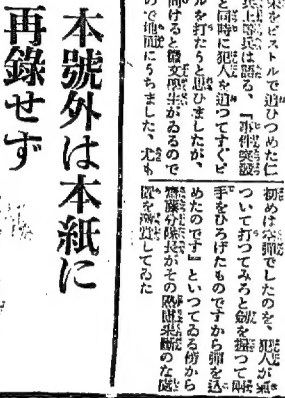 をピストルで追ひつめた仁
兵上等兵は語る、『事件突發
と同時に犯人を追つてすぐピ
ルを打たうと思ひましたが、
向けると學生がゐるので
ので地面にうちました、尤も
初めは空彈でしたのを、犯人が氣
ついて打つてみろと劍を握つて兩
手をひろげたものですから彈を込
めたのです』といつてゐる傍から
齋藤分隊長がその果斷のな處
置を激賞してゐた
本號外は本紙に
再錄せず